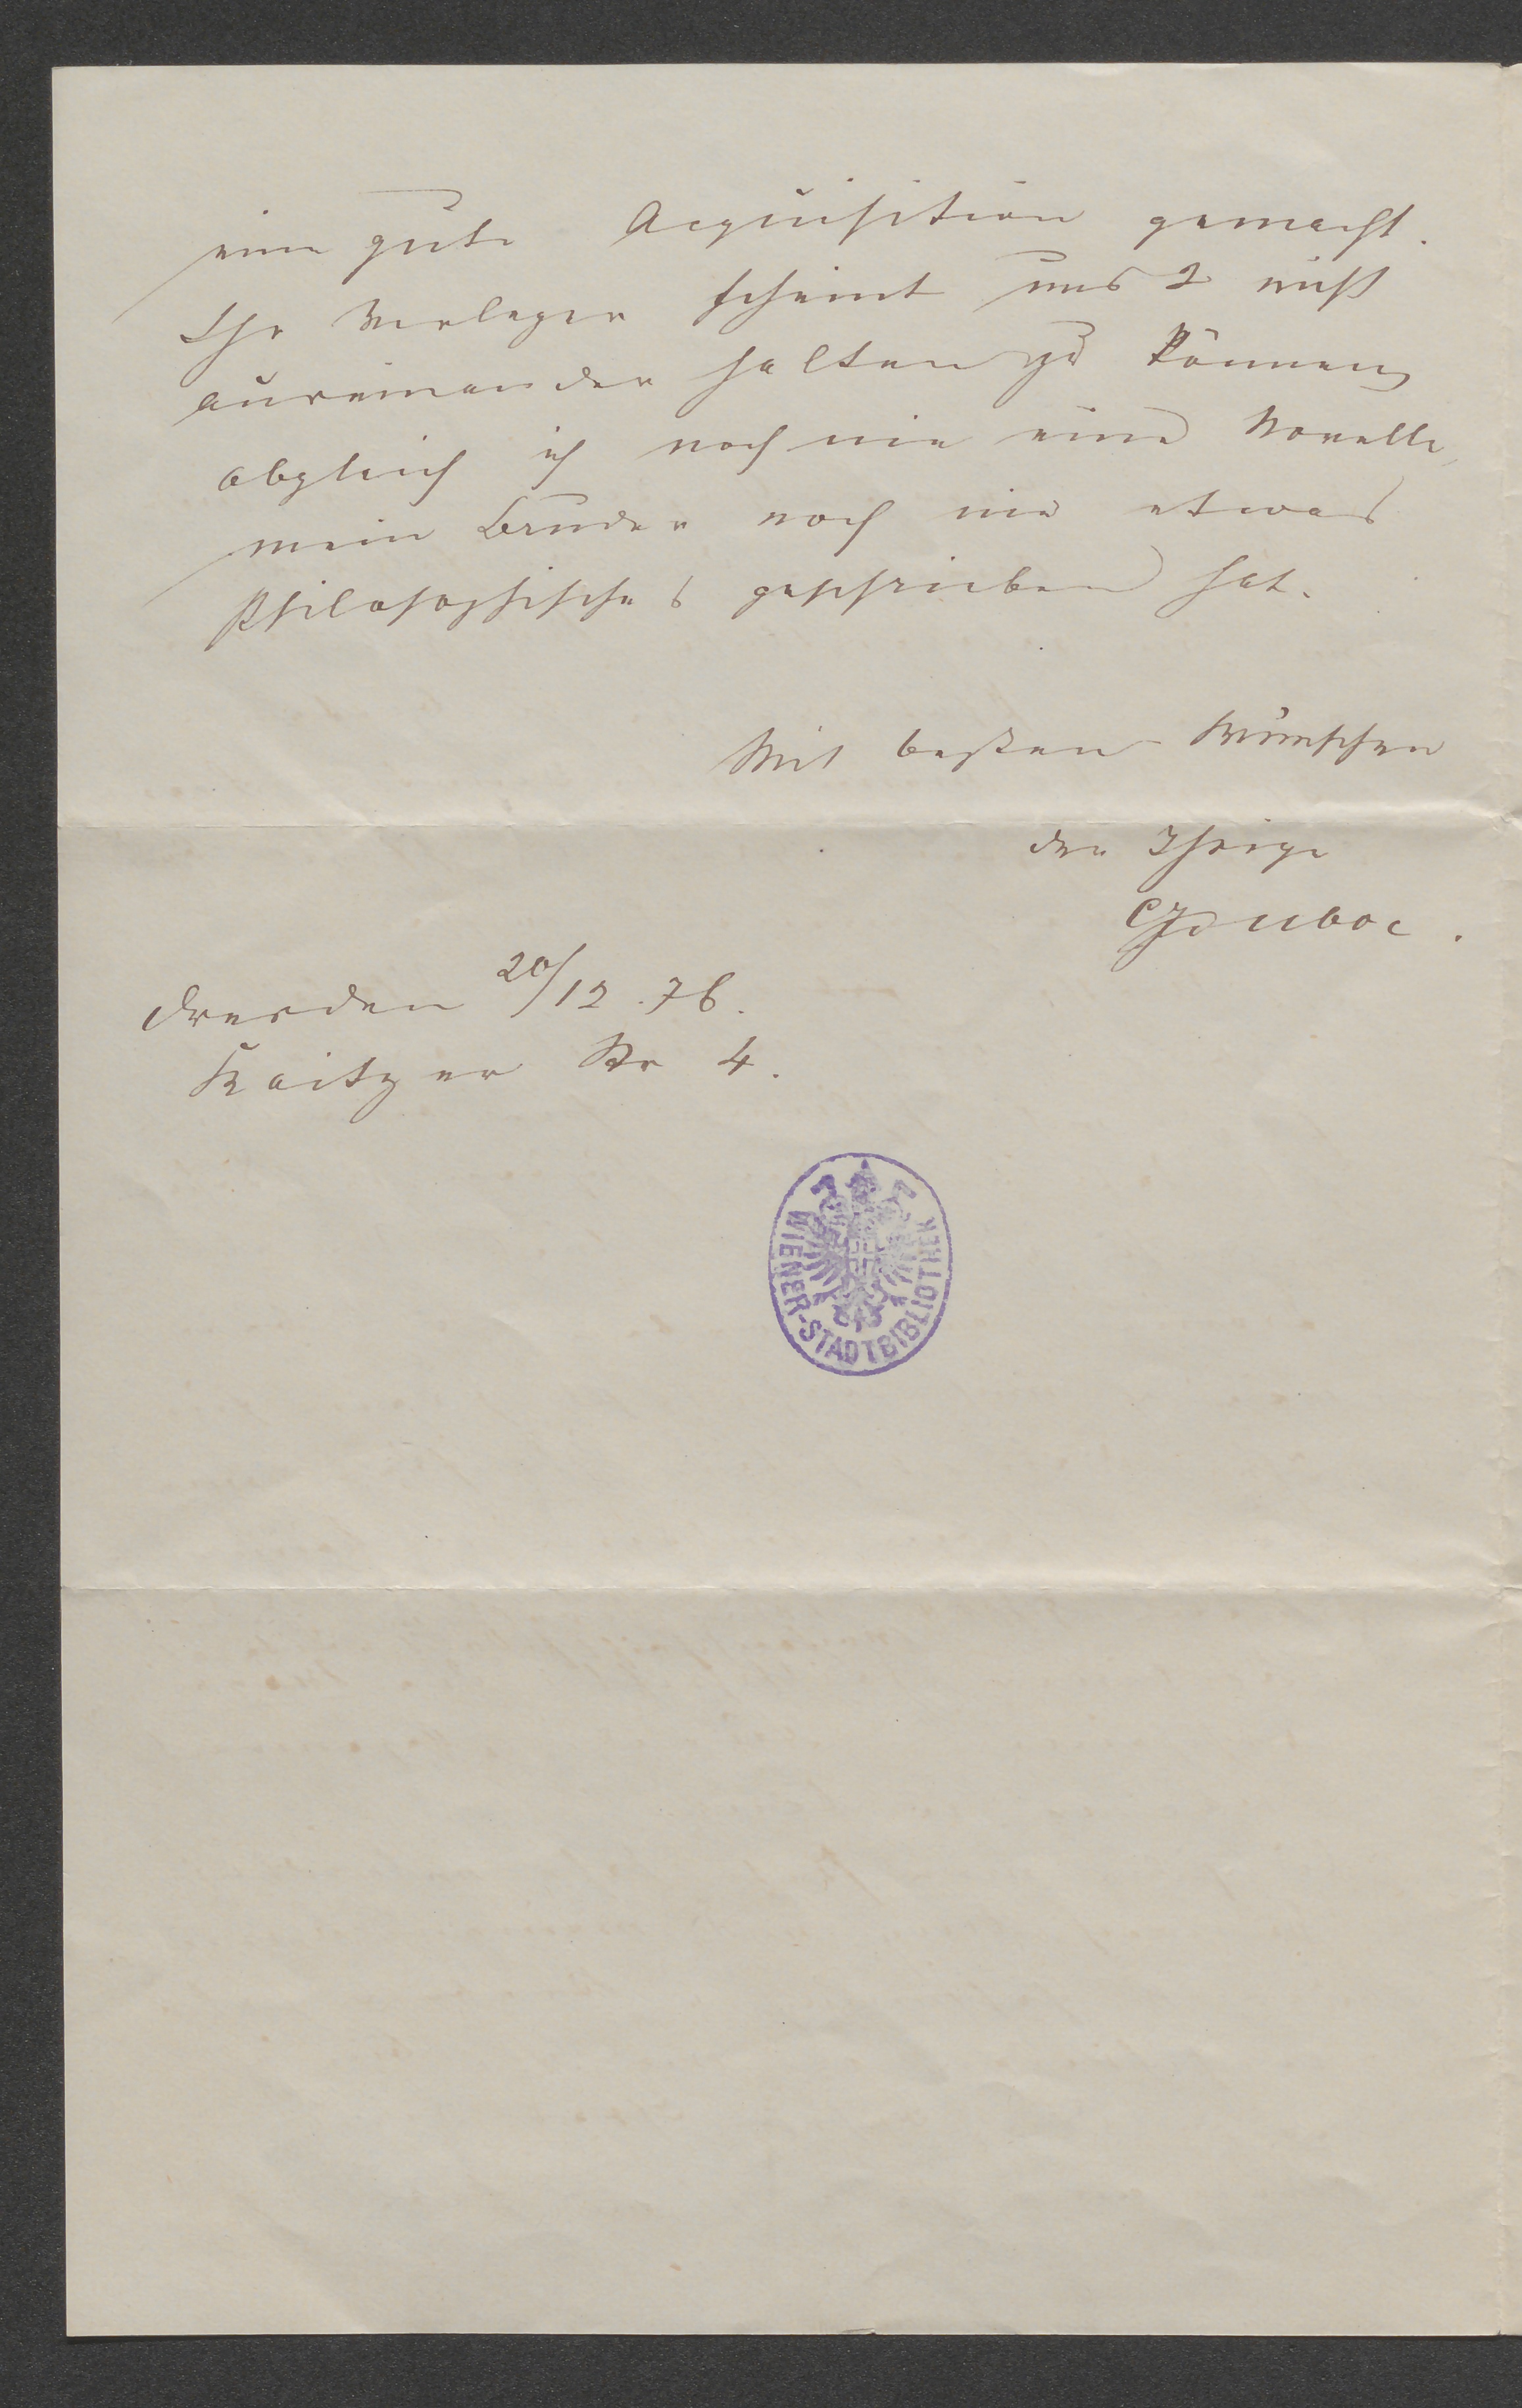 eine gute Acquisition gemacht.
Ihr Verleger scheint uns 2 nicht
auseinander halten zu können,
obgleich ich noch nie eine Novelle,
mein Bruder noch nie etwas
Philosophisches geschrieben hat.
Mit besten Wünschen
der Ihrige
Duboc.
Dresden 20/12. 76.
Kaitzer Str 4.
WIENER-STADTBIBLIOTHEK